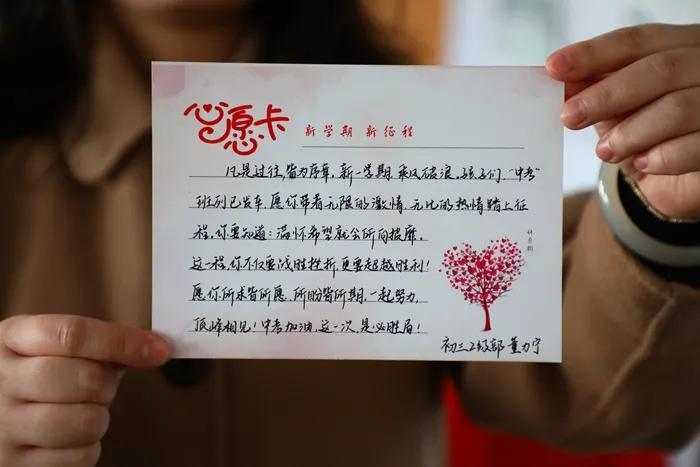 心愿卡
新学期 新征程
凡是过往,皆为序章,新一学期,乘风破浪,孩子们,“中考”
班列已发车,愿你带着无限的激情,无比的热情踏上征
程,你要知道:满怀希望就会所向披靡。
这一程,你不仅要战胜挫折,更要超越胜利!
愿你所求皆所愿,所盼皆所期,一起努力,
顶峰相见!中考加油,这一次,是必胜局!
初三2级部 董力宁